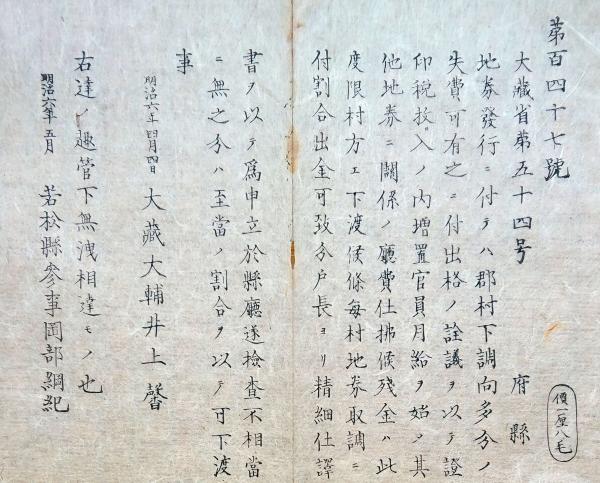 第百四十七號
大藏省第五十四号
府縣
地券發行ニ付テハ郡村下調向多分ノ
失費可有之ニ付出格ノ詮議ヲ以テ證
印税收入ノ内増置官員月給ヲ始メ其
他地券ニ關係ノ廳費仕拂候残金ハ此
度限村方エ下渡候條毎村地券取調ニ
付割合出金可致分戸長ヨリ精細仕譯
書ヲ以テ爲申立於縣廳遂檢査不相當
ニ無之分ハ至當ノ割合ヲ以テ可下渡
事
明治六年四月四日 大藏大輔井上馨
右達ノ趣管下無洩相達モノ也
明治六年五月 若松縣參事岡部綱紀
價一厘八毛